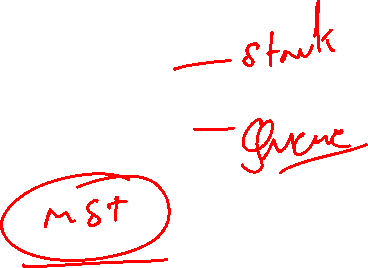 - Stack
- Queue
MST